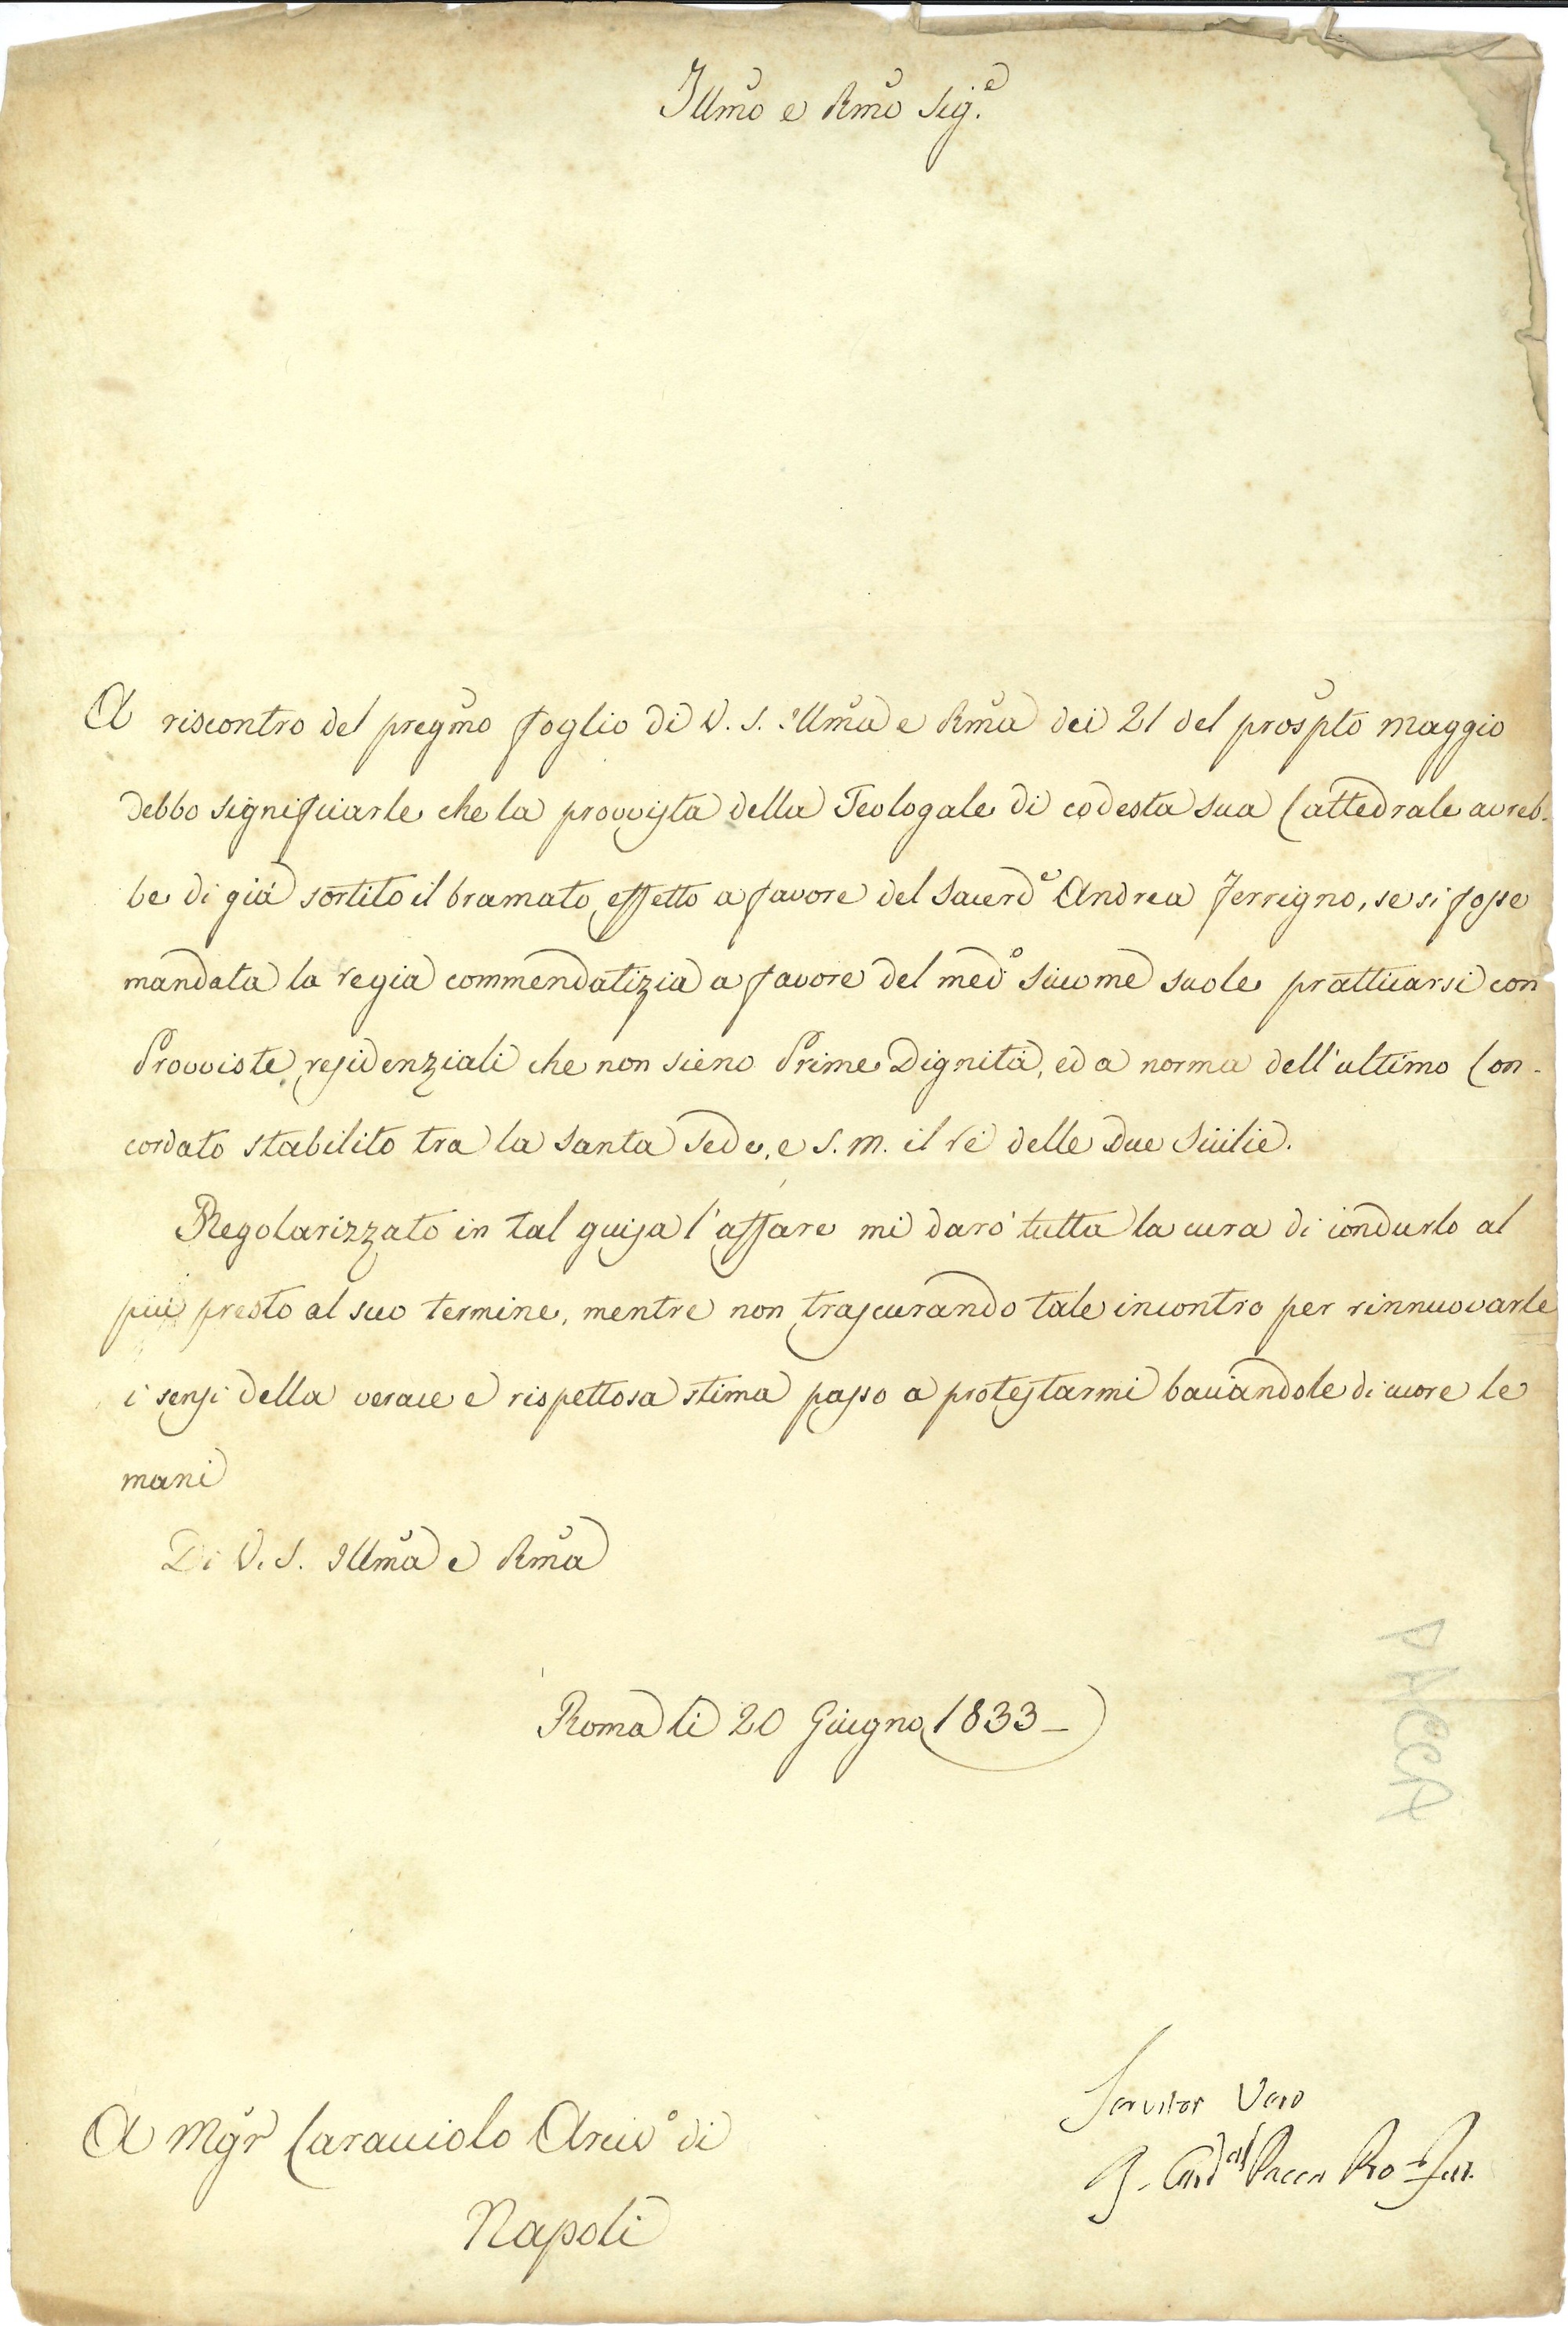 Illmo e Rmo Sig.e
A riscontro del pregmo foglio di V. S. Illma e Rma dei 21 del prospto maggio
debbo significarle che la provvista della Teologale di codesta sua Cattedrale avreb-
be di già sortito il bramato effetto a favore del Sacerde Andrea Ferrigno, se si fosse
mandata la regia commendatizia a favore del medo siccome suole pratticarsi con
Provviste residenziali che non sieno Prime Dignità, ed a norma dell'ultimo Con-
cordato stabilito tra la Santa Sede, e S. M. il Re delle Due Sicilie.
Regolarizzato in tal guisa l'affare mi darò tutta la cura di condurlo al
più presto al suo termine, mentre non trascurando tale incontro per rinnuovarle
i sensi della verace e rispettosa stima passo a protestarmi baciandole di cuore le
mani
Di V. S. Illma e Rma
Roma li 20 Giugno 1833 –
PACCA
Servitor Vero
B. Cardal Pacca Pro-
A Mgr Caracciolo Arcivo di
Napoli